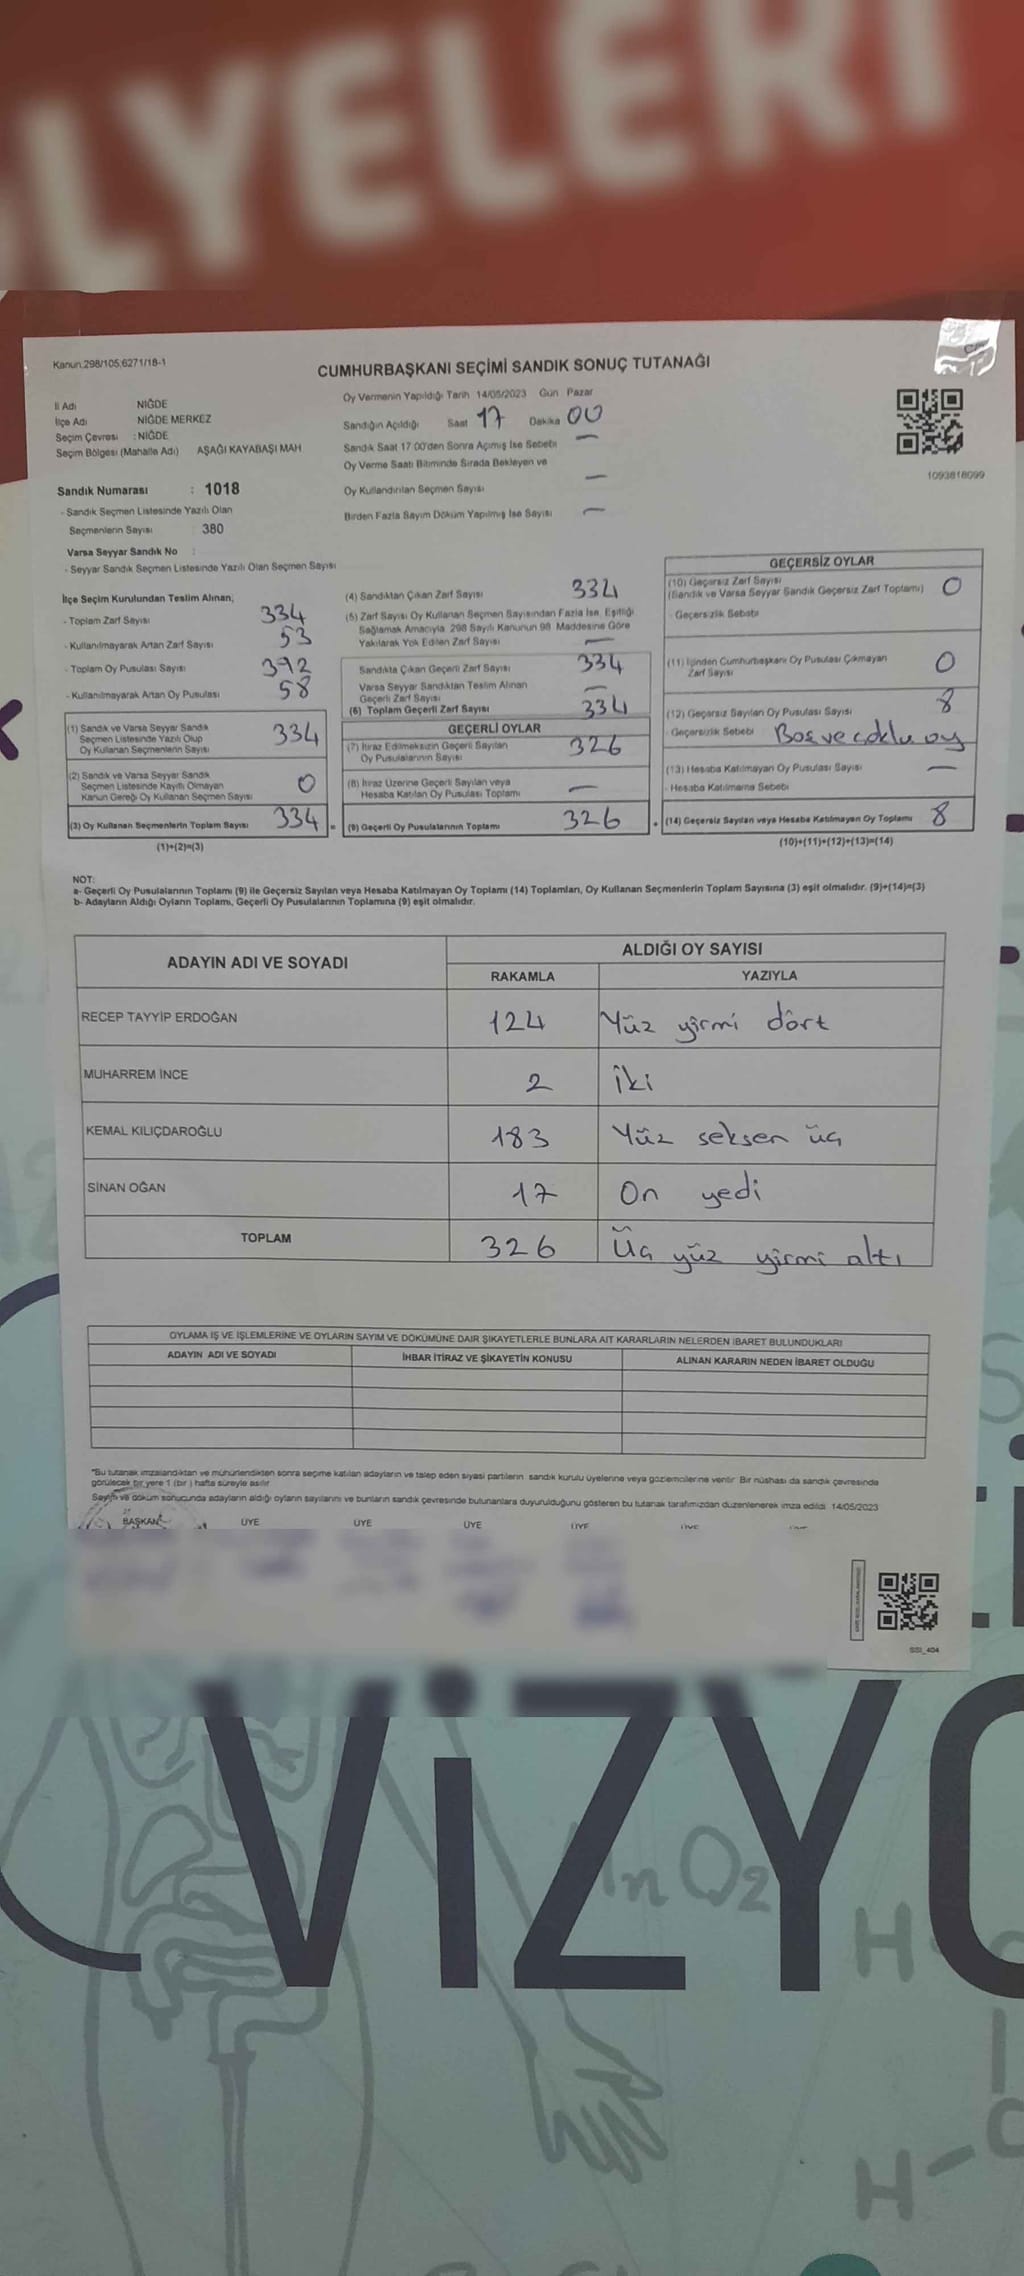 ÜYELERİ
Kanun.298/105,6271/18-1
CUMHURBAŞKANI SEÇİMİ SANDIK SONUÇ TUTANAĞI
İl Adı NİĞDE
İlçe Adı NİĞDE MERKEZ
Seçim Çevresi : NİĞDE
Seçim Bölgesi (Mahalle Adı) AŞAĞI KAYABAŞI MAH
Oy Vermenin Yapıldığı Tarih 14/05/2023 Gün Pazar
Sandığın Açıldığı Saat 17 Dakika 00
Sandık Saat 17:00'den Sonra Açımış İse Sebebi —
Oy Verme Saati Bitiminde Sırada Bekleyen ve
Oy Kullandırılan Seçmen Sayısı —
Birden Fazla Sayım Döküm Yapılmış İse Sayısı —
1093818099
Sandık Numarası : 1018
- Sandık Seçmen Listesinde Yazılı Olan
Seçmenlerin Sayısı 380
Varsa Seyyar Sandık No :
- Seyyar Sandık Seçmen Listesinde Yazılı Olan Seçmen Sayısı
İlçe Seçim Kurulundan Teslim Alınan;
- Toplam Zarf Sayısı 334
- Kullanılmayarak Artan Zarf Sayısı 53
- Toplam Oy Pusulası Sayısı 392
- Kullanılmayarak Artan Oy Pusulası 58
(1) Sandık ve Varsa Seyyar Sandık
Seçmen Listesinde Yazılı Olup
Oy Kullanan Seçmenlerin Sayısı 334
(2) Sandık ve Varsa Seyyar Sandık
Seçmen Listesinde Kayıtlı Olmayan
Kanun Gereği Oy Kullanan Seçmen Sayısı 0
(3) Oy Kullanan Seçmenlerin Toplam Sayısı 334 =
(1)+(2)=(3)
(4) Sandıktan Çıkan Zarf Sayısı 334
(5) Zarf Sayısı Oy Kullanan Seçmen Sayısından Fazla İse, Eşitliği
Sağlamak Amacıyla, 298 Sayılı Kanunun 98. Maddesine Göre
Yakılarak Yok Edilen Zarf Sayısı —
Sandıkta Çıkan Geçerli Zarf Sayısı 334
Varsa Seyyar Sandıktan Teslim Alınan
Geçerli Zarf Sayısı —
(6) Toplam Geçerli Zarf Sayısı 334
GEÇERLİ OYLAR
(7) İtiraz Edilmeksizin Geçerli Sayılan
Oy Pusulalarının Sayısı 326
(8) İtiraz Üzerine Geçerli Sayılan veya
Hesaba Katılan Oy Pusulası Toplamı —
(9) Geçerli Oy Pusulalarının Toplamı 326 +
GEÇERSİZ OYLAR
(10) Geçersiz Zarf Sayısı
(Sandık ve Varsa Seyyar Sandık Geçersiz Zarf Toplamı) 0
- Geçersizlik Sebebi
(11) İçinden Cumhurbaşkanı Oy Pusulası Çıkmayan
Zarf Sayısı 0
(12) Geçersiz Sayılan Oy Pusulası Sayısı 8
- Geçersizlik Sebebi Boş ve çoklu oy
(13) Hesaba Katılmayan Oy Pusulası Sayısı —
- Hesaba Katılmama Sebebi
(14) Geçersiz Sayılan veya Hesaba Katılmayan Oy Toplamı 8
(10)+(11)+(12)+(13)=(14)
NOT:
a- Geçerli Oy Pusulalarının Toplamı (9) ile Geçersiz Sayılan veya Hesaba Katılmayan Oy Toplamı (14) Toplamları, Oy Kullanan Seçmenlerin Toplam Sayısına (3) eşit olmalıdır. (9)+(14)=(3)
b- Adayların Aldığı Oyların Toplamı, Geçerli Oy Pusulalarının Toplamına (9) eşit olmalıdır.
ADAYIN ADI VE SOYADI ALDIĞI OY SAYISI
RAKAMLA YAZIYLA
RECEP TAYYİP ERDOĞAN 124 Yüz yirmi dört
MUHARREM İNCE 2 İki
KEMAL KILIÇDAROĞLU 183 Yüz seksen üç
SİNAN OĞAN 17 On yedi
TOPLAM 326 Üç yüz yirmi altı
OYLAMA İŞ VE İŞLEMLERİNE VE OYLARIN SAYIM VE DÖKÜMÜNE DAİR ŞİKAYETLERLE BUNLARA AİT KARARLARIN NELERDEN İBARET BULUNDUKLARI
ADAYIN ADI VE SOYADI İHBAR İTİRAZ VE ŞİKAYETİN KONUSU ALINAN KARARIN NEDEN İBARET OLDUĞU
*Bu tutanak imzalandıktan ve mühürlendikten sonra seçime katılan adayların ve talep eden siyasi partilerin sandık kurulu üyelerine veya gözlemcilerine verilir. Bir nüshası da sandık çevresinde
görülecek bir yere 1 (bir) hafta süreyle asılır
Sayım ve döküm sonucunda adayların aldığı oyların sayılarını ve bunların sandık çevresinde bulunanlara duyurulduğunu gösteren bu tutanak tarafımızdan düzenlenerek imza edildi. 14/05/2023
BAŞKAN ÜYE ÜYE ÜYE ÜYE ÜYE ÜYE
SSI_404
VİZYO
nO2
H
H